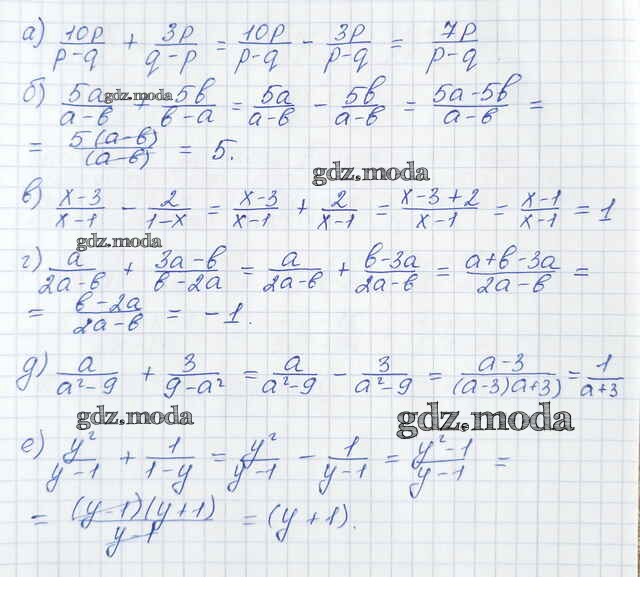 а) 10p/(p-q) + 3p/(q-p) = 10p/(p-q) - 3p/(p-q) = 7p/(p-q)
б) 5a/(a-b) + 5b/(b-a) = 5a/(a-b) - 5b/(a-b) = (5a-5b)/(a-b) =
gdz.moda
= 5(a-b)/(a-b) = 5.
gdz.moda
в) (x-3)/(x-1) - 2/(1-x) = (x-3)/(x-1) + 2/(x-1) = (x-3+2)/(x-1) = (x-1)/(x-1) = 1
gdz.moda
г) a/(2a-b) + (3a-b)/(b-2a) = a/(2a-b) + (b-3a)/(2a-b) = (a+b-3a)/(2a-b) =
= (b-2a)/(2a-b) = -1.
д) a/(a²-9) + 3/(9-a²) = a/(a²-9) - 3/(a²-9) = (a-3)/((a-3)(a+3)) = 1/(a+3)
gdz.moda
gdz.moda
е) y²/(y-1) + 1/(1-y) = y²/(y-1) - 1/(y-1) = (y²-1)/(y-1) =
= (y-1)(y+1)/(y-1) = (y+1).